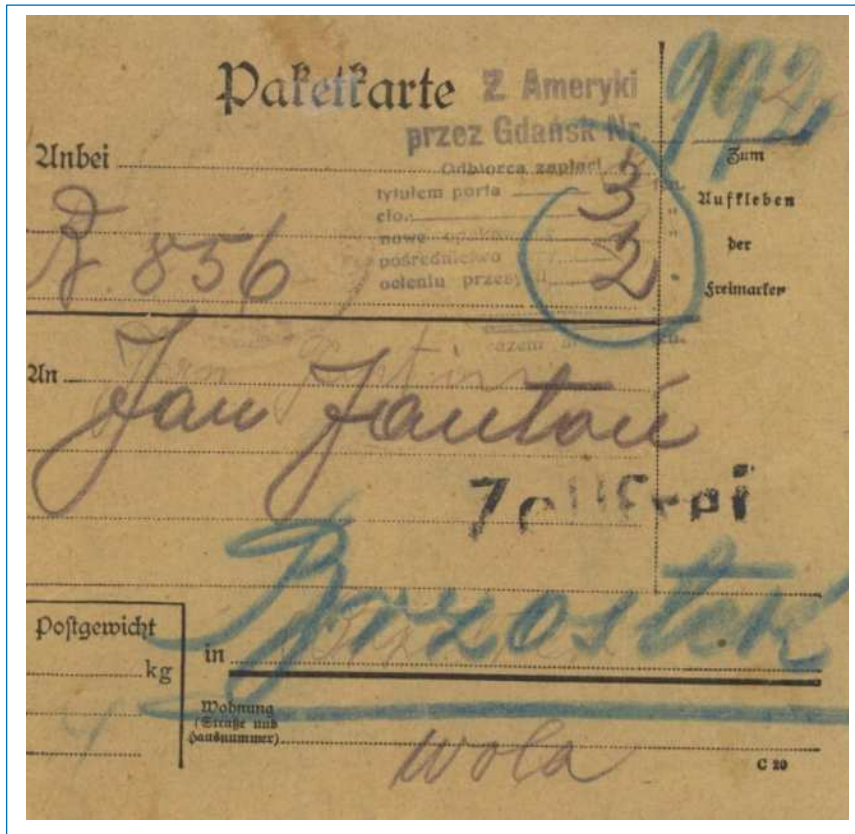 Paketkarte
Z Ameryki
przez Gdańsk Nr.
992
Anbei
Odbiorca zapłaci
tytułem porta 3
cło
nowe opakow
pośrednictwo
ocleniu przesył 2
Z. 856
Zum
Aufkleben
der
Freimarken
razem
An
Jan Jantoń
Zollfrei
Postgewicht
kg
in Brzostek
Wohnung
(Straße und
Hausnummer)
Wola
C 20